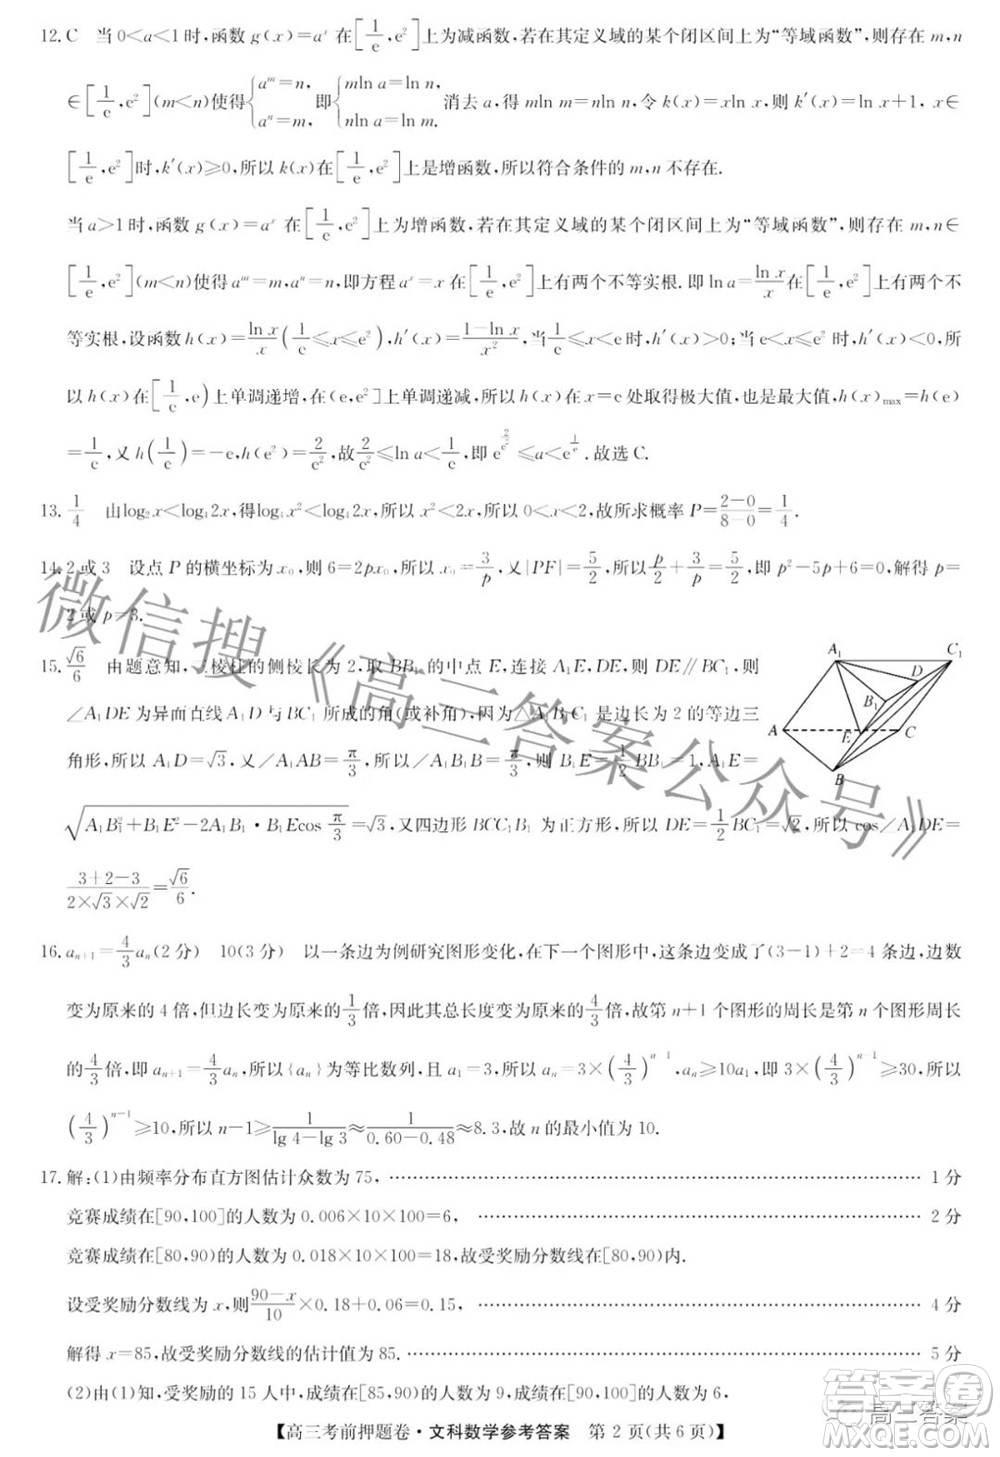 12. C　当 0<a<1 时,函数 g(x)=a^x 在[1/e,e²]上为减函数,若在其定义域的某个闭区间上为“等域函数”,则存在 m,n
∈[1/e,e²](m<n)使得{a^m=n, a^n=m,即{mln a=ln n, nln a=ln m.消去 a,得 mln m=nln n,令 k(x)=xln x,则 k′(x)=ln x+1, x∈
[1/e,e²]时,k′(x)≥0,所以 k(x)在[1/e,e²]上是增函数,所以符合条件的 m,n 不存在.
当 a>1 时,函数 g(x)=a^x 在[1/e,e²]上为增函数,若在其定义域的某个闭区间上为“等域函数”,则存在 m,n∈
[1/e,e²](m<n)使得 a^m=m,a^n=n,即方程 a^x=x 在[1/e,e²]上有两个不等实根.即 ln a=ln x/x在[1/e,e²]上有两个不
等实根.设函数 h(x)=ln x/x(1/e≤x≤e²),h′(x)=(1-ln x)/x²,当1/e≤x<e 时,h′(x)>0;当 e<x≤e² 时,h′(x)<0,所
以 h(x)在[1/e,e)上单调递增,在(e,e²]上单调递减,所以 h(x)在 x=e 处取得极大值,也是最大值,h(x)max=h(e)
=1/e,又 h(1/e)=-e,h(e²)=2/e²,故2/e²≤ln a<1/e,即 e^(2/e²)≤a<e^(1/e).故选 C.
13. 1/4　由log₂x<log₄2x,得log₄x²<log₄2x,所以 x²<2x,所以 0<x<2,故所求概率 P=(2-0)/(8-0)=1/4.
14. 2 或 3　设点 P 的横坐标为 x₀,则 6=2px₀,x₀=3/p,又|PF|=5/2,所以p/2+3/p=5/2,即 p²-5p+6=0,解得 p=
2 或 p=3.
15. √6/6　由题意知,三棱柱的侧棱长为 2,取 BB₁ 的中点 E,连接 A₁E,DE,则 DE∥BC₁,则
∠A₁DE 为异面直线 A₁D 与 BC₁ 所成的角(或补角),因为△A₁B₁C₁ 是边长为 2 的等边三
角形,所以 A₁D=√3,又∠A₁AB=π/3,所以∠A₁B₁B=π/3,则 B₁E=1/2BB₁=1,A₁E=
√(A₁B₁²+B₁E²-2A₁B₁·B₁Ecos π/3)=√3,又四边形 BCC₁B₁ 为正方形,所以 DE=1/2BC₁=√2,所以 cos∠A₁DE=
(3+2-3)/(2×√3×√2)=√6/6.
A₁
C₁
D
B₁
A
E
C
B
16. aₙ₊₁=4/3aₙ(2 分)　10(3 分)　以一条边为例研究图形变化,在下一个图形中,这条边变成了(3-1)+2=4 条边,边数
变为原来的 4 倍,但边长变为原来的1/3倍,因此其总长度变为原来的4/3倍,故第 n+1 个图形的周长是第 n 个图形周长
的4/3倍,即 aₙ₊₁=4/3aₙ,所以{aₙ}为等比数列,且 a₁=3,所以 aₙ=3×(4/3)^(n-1),aₙ≥10a₁,即 3×(4/3)^(n-1)≥30,所以
(4/3)^(n-1)≥10,所以 n-1≥1/(lg 4-lg 3)≈1/(0.60-0.48)≈8.3,故 n 的最小值为 10.
17. 解:(1)由频率分布直方图估计众数为 75, …… 1 分
竞赛成绩在[90,100]的人数为 0.006×10×100=6, …… 2 分
竞赛成绩在[80,90)的人数为 0.018×10×100=18,故受奖励分数线在[80,90)内.
设受奖励分数线为 x,则(90-x)/10×0.18+0.06=0.15, …… 4 分
解得 x=85,故受奖励分数线的估计值为 85. …… 5 分
(2)由(1)知,受奖励的 15 人中,成绩在[85,90)的人数为 9,成绩在[90,100]的人数为 6,
【高三考前押题卷·文科数学参考答案　第 2 页(共 6 页)】
微信搜《高三答案公众号》
答案圈
高三答案
MXQE.COM